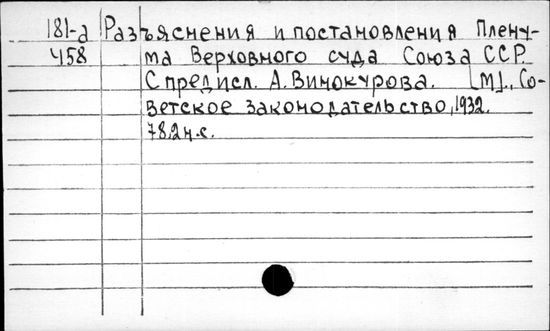 181-а Разъяснения и постановления Плену-
458 ма Верховного суда Союза ССР.
С предисл. А. Винокурова. [М]., Со-
ветское законодательство, 1932.
78,2н.с.